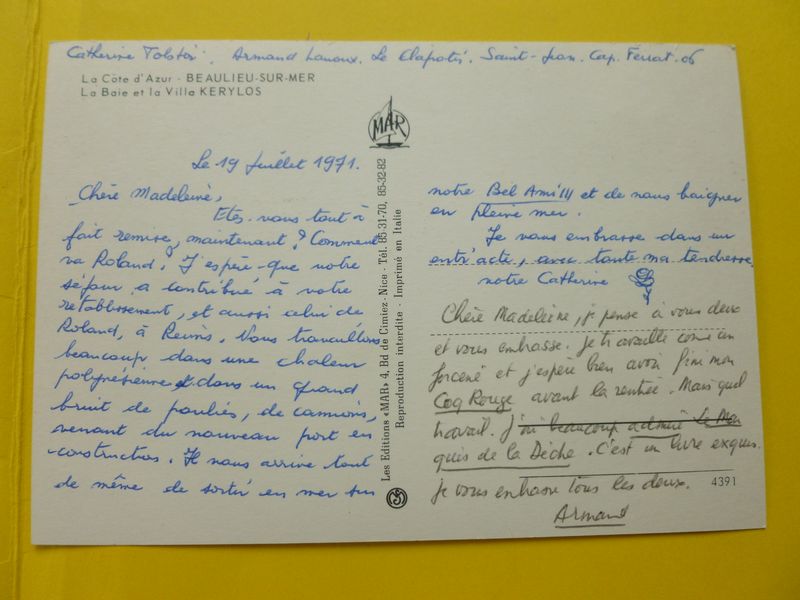 Catherine Tolstoï. Armand Lanoux. Le Clapotis. Saint-Jean. Cap. Ferrat. 06
La Côte d'Azur - BEAULIEU-SUR-MER
La Baie et la Villa KERYLOS
MAR
Le 19 Juillet 1971.
Chère Madeleine,
Etes-vous tout à
fait remise, maintenant? Comment
va Roland. J'espère que notre
séjour a contribué à votre
rétablissement, et aussi celui de
Roland, à Reims. Nous travaillons
beaucoup dans une chaleur
polynésienne et dans un grand
bruit de poulies, de camions,
venant du nouveau port en
construction. Il nous arrive tout
de même de sortir en mer sur
Les Editions «MAR» 4, Bd de Cimiez - Nice - Tél. 85 31-70, 85-32-82
Reproduction interdite - Imprimé en Italie
notre Bel Ami III et de nous baigner
en pleine mer.
Je vous embrasse dans un
entr'acte, avec toute ma tendresse
notre Catherine
Chère Madeleine, je pense à vous deux
et vous embrasse. Je travaille comme un
forcené et j'espère bien avoir fini mon
Coq Rouge avant la rentrée. Mais quel
travail. J'ai beaucoup admiré Le Mar
quis de la Dèche. C'est un livre exquis.
Je vous embrasse tous les deux.
4391
Armand